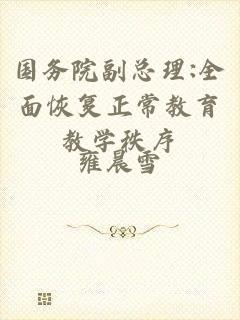 国务院副总理:全
面恢复正常教育
教学秩序
雍晨雪